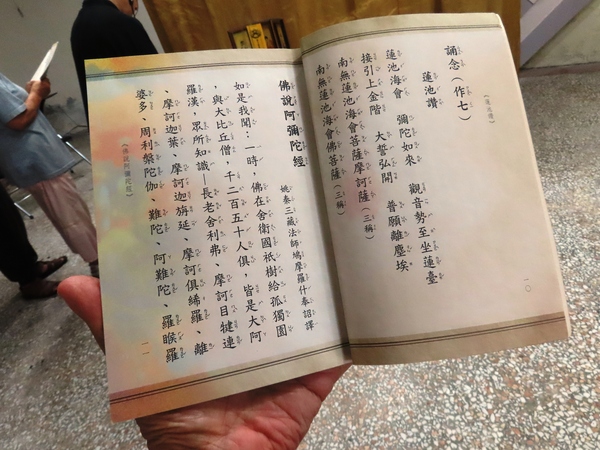 《蓮池讚》
一〇
誦念（作七）
蓮池讚
蓮池海會　彌陀如來　觀音勢至坐蓮臺
接引上金階　大誓弘開　普願離塵埃
南無蓮池海會菩薩摩訶薩（三稱）
南無蓮池海會佛菩薩（三稱）
佛說阿彌陀經
姚秦三藏法師鳩摩羅什奉詔譯
如是我聞：一時，佛在舍衛國祇樹給孤獨園
，與大比丘僧，千二百五十人俱，皆是大阿
羅漢，眾所知識—長老舍利弗、摩訶目犍連
、摩訶迦葉、摩訶迦旃延、摩訶俱絺羅、離
婆多、周利槃陀伽、難陀、阿難陀、羅睺羅
《佛說阿彌陀經》
一一